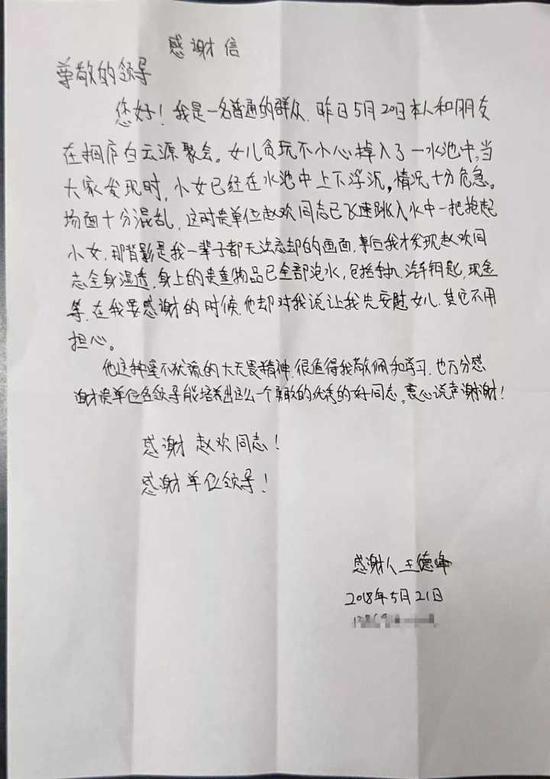 感谢信
尊敬的领导
您好！我是一名普通的群众，昨日5月20日本人和朋友
在桐庐白云源聚会。女儿贪玩不小心掉入了一水池中，当
大家发现时，小女已经在水池中上下浮沉，情况十分危急。
场面十分混乱，这时贵单位赵欢同志已飞速跳入水中一把抱起
小女，那背影是我一辈子都无法忘却的画面，事后我才发现赵欢同
志全身湿透，身上的贵重物品已全部泡水，包括手机、汽车钥匙、现金
等，在我要感谢的时候，他却对我说让我先安慰女儿，其它不用
担心。
他这种毫不犹豫的大无畏精神，很值得我敬佩和学习，也万分感
谢贵单位各领导能培养出这么一个勇敢的优秀的好同志，衷心说声谢谢！
感谢 赵欢同志！
感谢 单位领导！
感谢人 王德峰
2018年5月21日